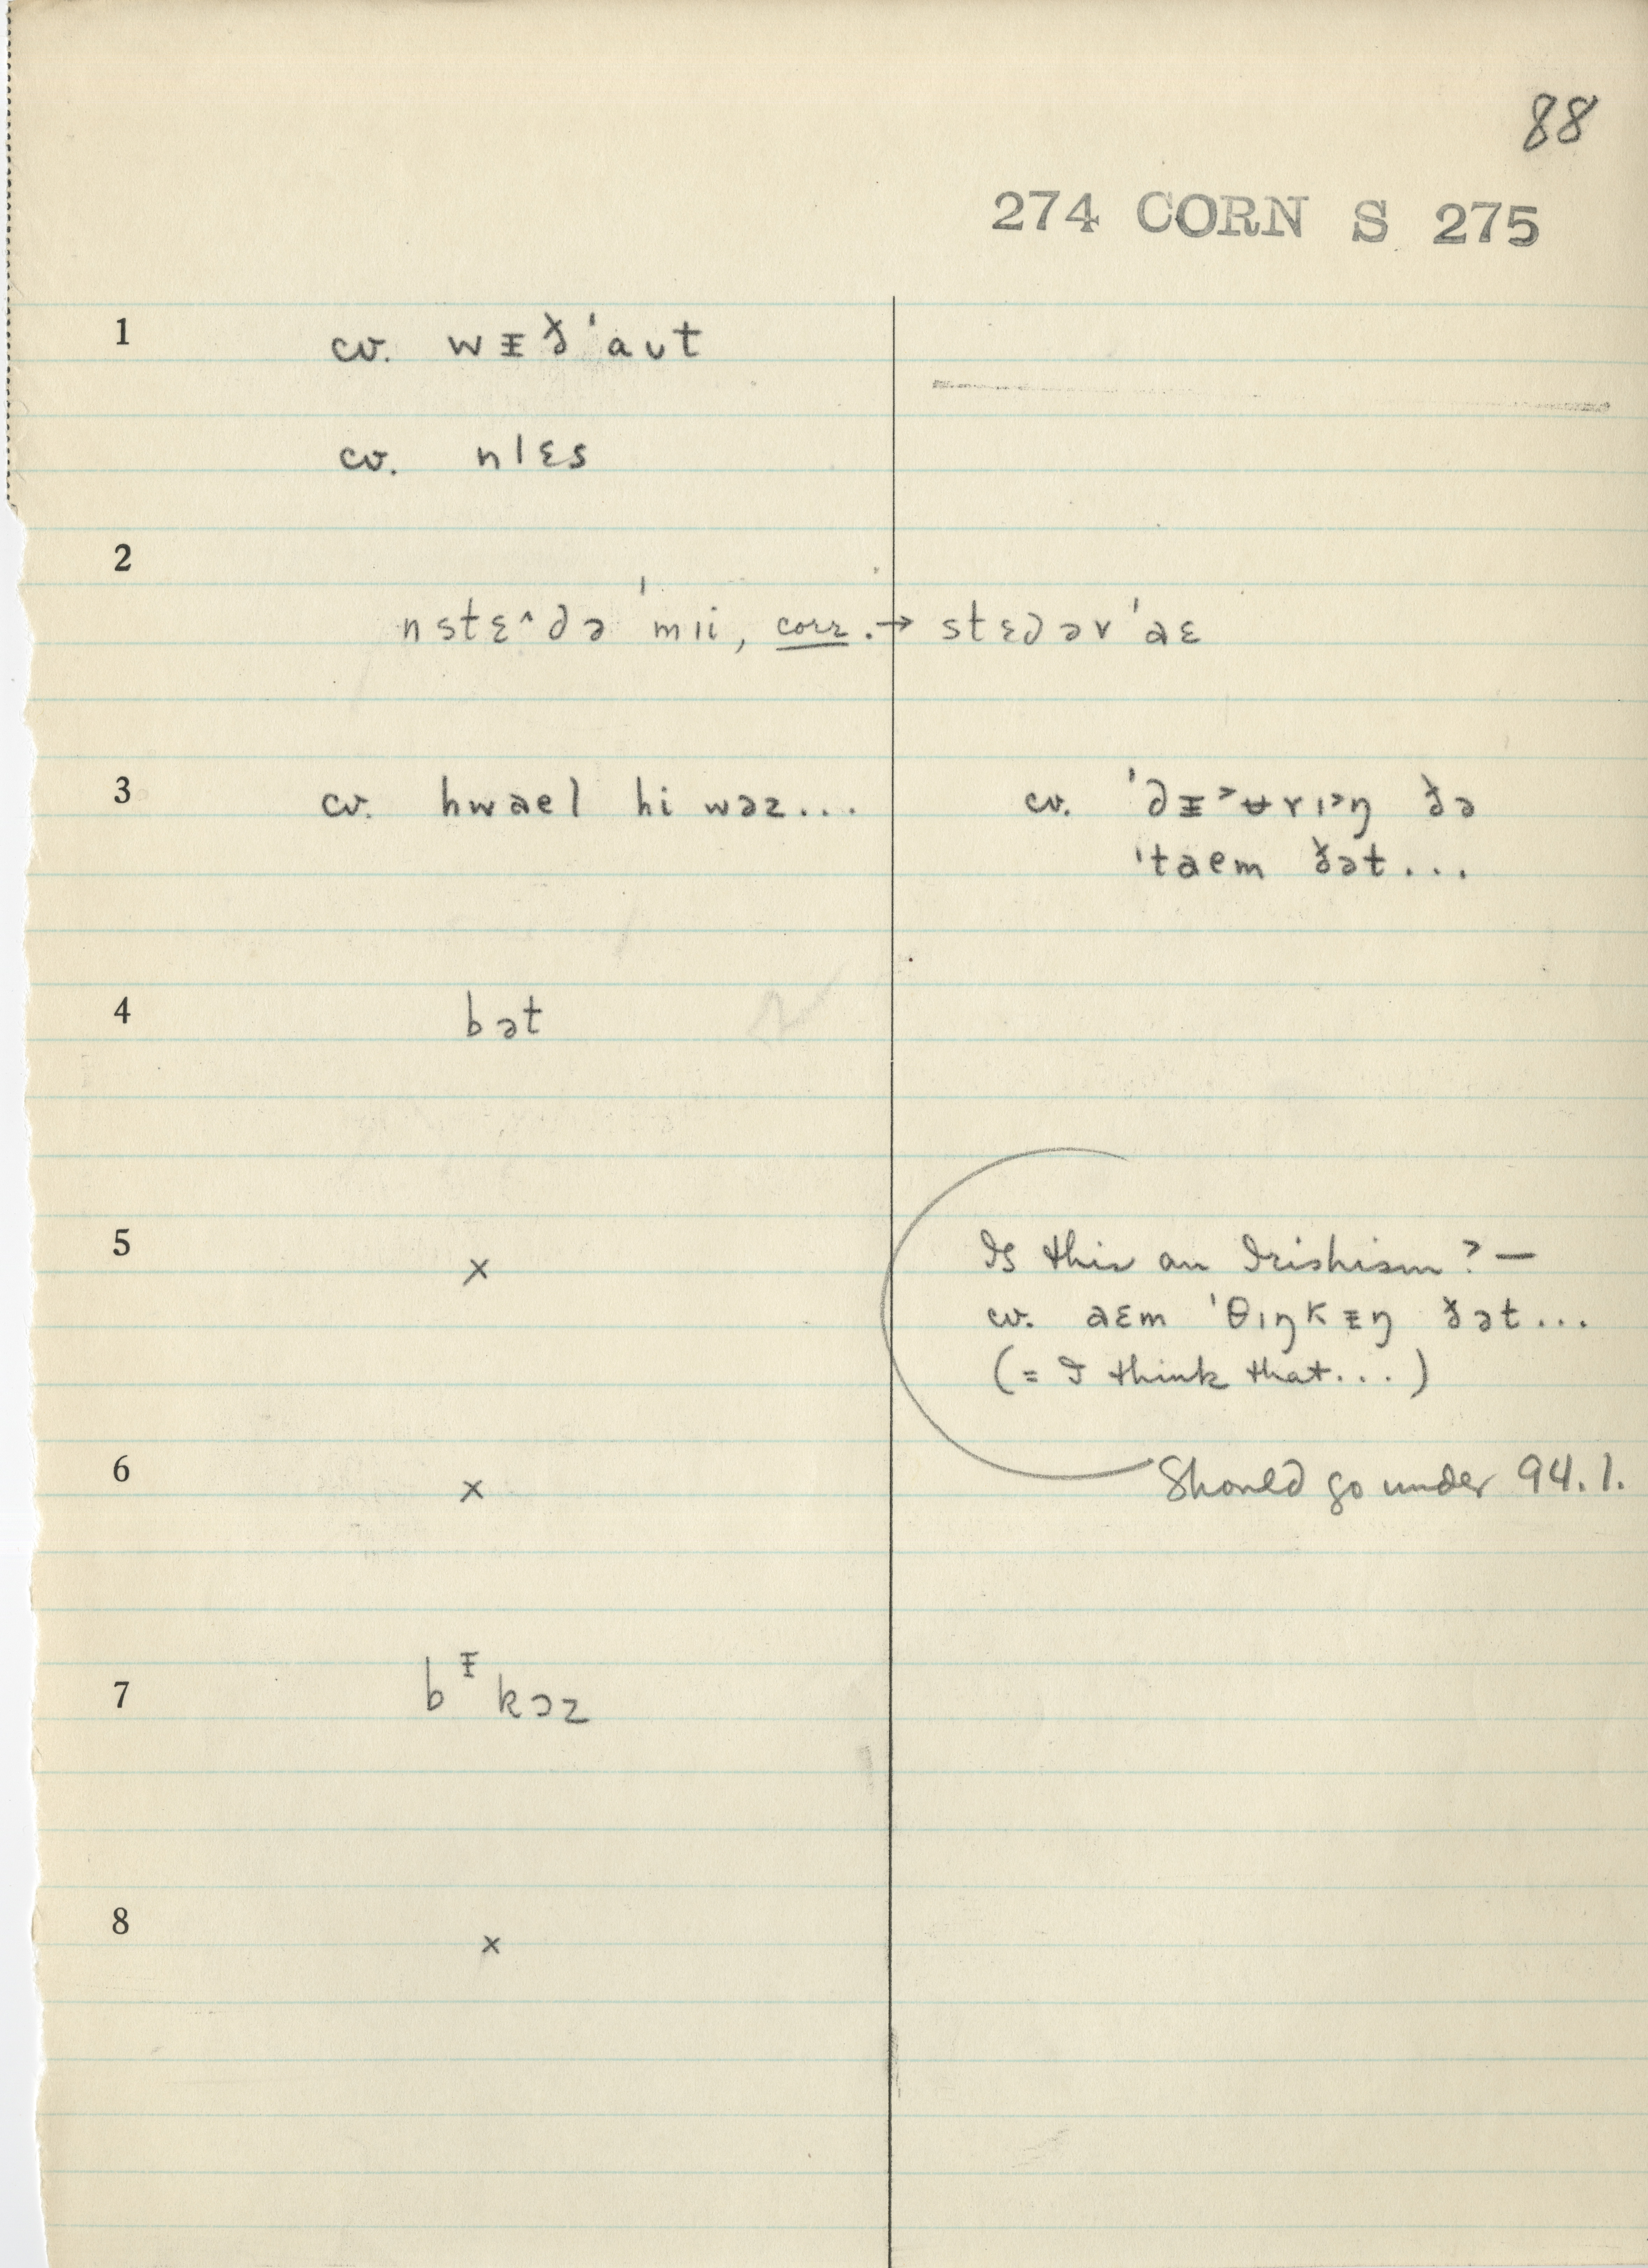 88
274 CORN S 275
1 cv. wᵻð'aut
cv. nlɛs
2
nstɛ^də 'mɪi, corr. → stɛdəv'aɛ
3 cv. hwael hi wəz... cv. 'dᵻ˃ʉrɪ˃ŋ ðə
'taem ðət...
4 bət
5 × Is this an Irishism? —
cv. aɛm 'θɪŋkᵻŋ ðət...
(= I think that...)
6 × Should go under 94.1.
7 bᵻkɔz
8 ×